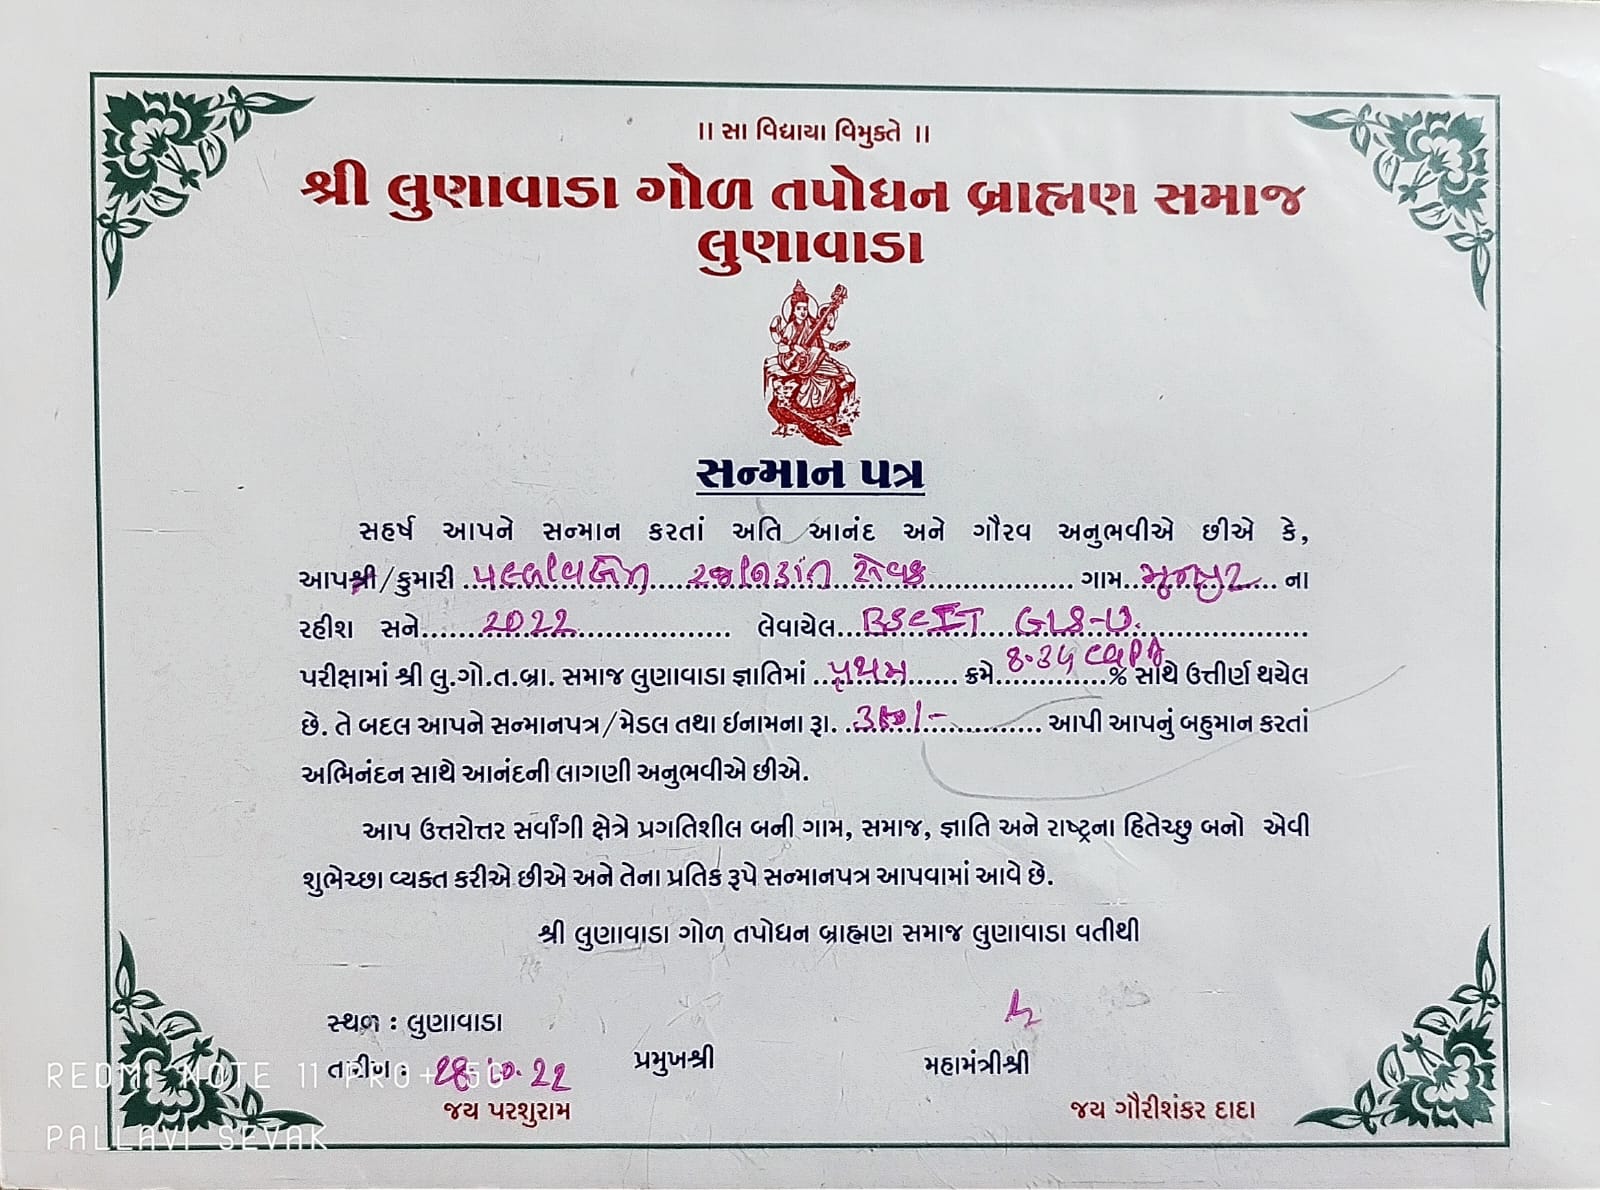 ।। સા વિદ્યાયા વિમુક્તે ।।
શ્રી લુણાવાડા ગોળ તપોધન બ્રાહ્મણ સમાજ
લુણાવાડા
સન્માન પત્ર
સહર્ષ આપને સન્માન કરતાં અતિ આનંદ અને ગૌરવ અનુભવીએ છીએ કે,
આપશ્રી/કુમારી પલ્લવિબેન રજનિકાંત સેવક ગામ ના
રહીશ સને 2022 લેવાયેલ BSCIT GLS-U.
પરીક્ષામાં શ્રી લુ.ગો.ત.બ્રા. સમાજ લુણાવાડા જ્ઞાતિમાં પ્રથમ ક્રમે 8.34 CGPA % સાથે ઉત્તીર્ણ થયેલ
છે. તે બદલ આપને સન્માનપત્ર/મેડલ તથા ઇનામના રૂા. આપી આપનું બહુમાન કરતાં
અભિનંદન સાથે આનંદની લાગણી અનુભવીએ છીએ.
આપ ઉત્તરોત્તર સર્વાંગી ક્ષેત્રે પ્રગતિશીલ બની ગામ, સમાજ, જ્ઞાતિ અને રાષ્ટ્રના હિતેચ્છુ બનો એવી
શુભેચ્છા વ્યક્ત કરીએ છીએ અને તેના પ્રતિક રૂપે સન્માનપત્ર આપવામાં આવે છે.
શ્રી લુણાવાડા ગોળ તપોધન બ્રાહ્મણ સમાજ લુણાવાડા વતીથી
સ્થળ : લુણાવાડા
તારીખ : પ્રમુખશ્રી મહામંત્રીશ્રી
જય પરશુરામ જય ગૌરીશંકર દાદા
REDMI NOTE 11 PRO+ 5G
PALLAVI SEVAK